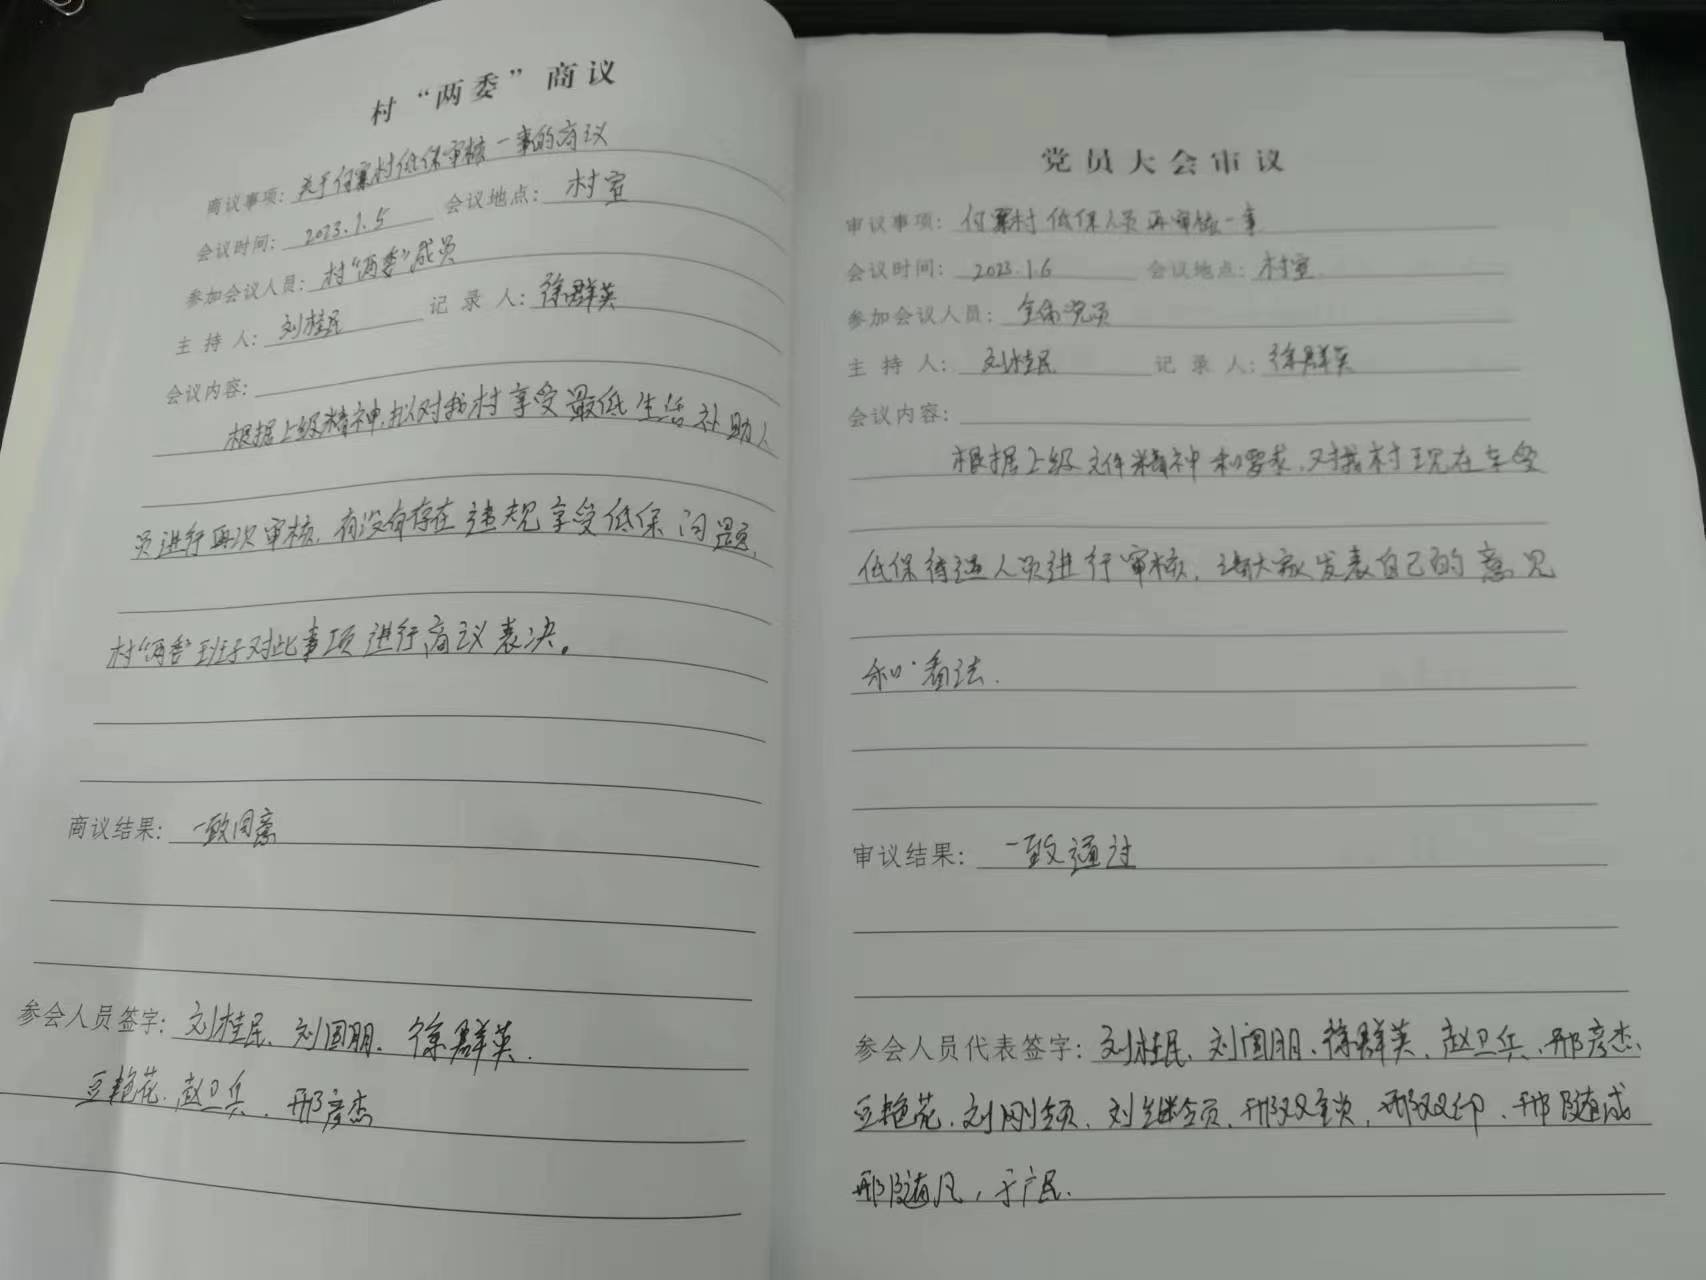 村“两委”商议
商议事项：关于付寨村低保审核一事的商议
会议时间：2023.1.5 会议地点：村室
参加会议人员：村“两委”成员
主持人：刘桂民 记录人：徐群英
会议内容：
根据上级精神，拟对我村享受最低生活补助人
员进行再次审核，有没有存在违规享受低保问题，
村“两委”班子对此事项进行商议表决。
商议结果：一致同意
参会人员签字：刘桂民、刘国朋、徐群英、
豆艳花、赵卫兵、邢彦杰
党员大会审议
审议事项：付寨村低保人员再审核一事
会议时间：2023.1.6 会议地点：村室
参加会议人员：全体党员
主持人：刘桂民 记录人：徐群英
会议内容：
根据上级文件精神和要求，对我村现在享受
低保待遇人员进行审核，请大家发表自己的意见
和看法.
审议结果：一致通过
参会人员代表签字：刘桂民、刘国朋、徐群英、赵卫兵、邢彦杰
豆艳花、刘刚领、刘继领、邢双全、邢双印、邢随成
邢随凡，于广民.